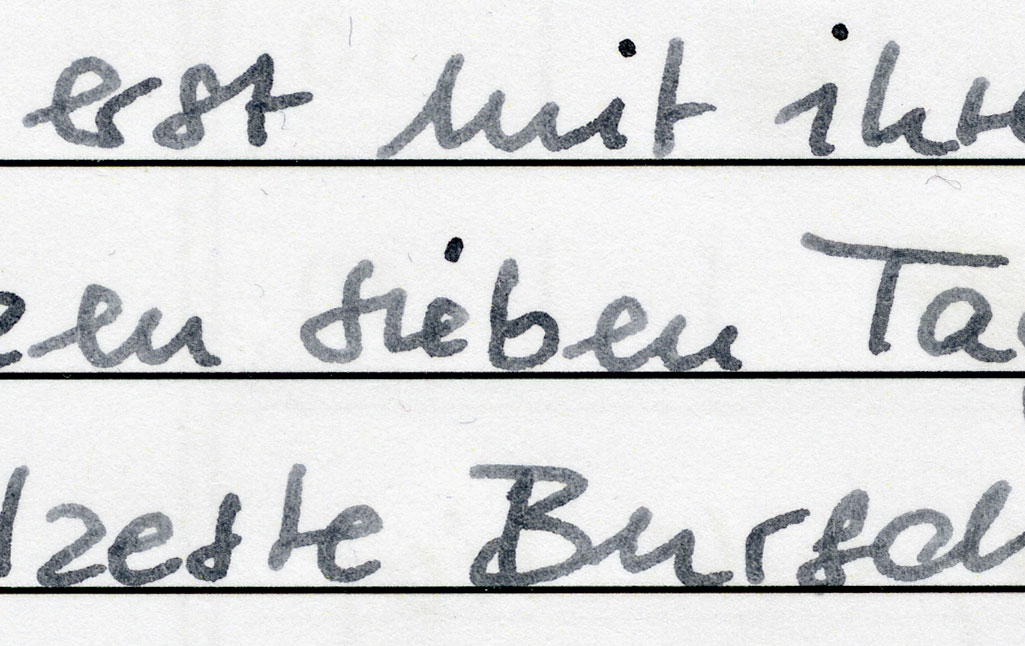 erst mit ihre
zen sieben Tag
lzeste Bursch